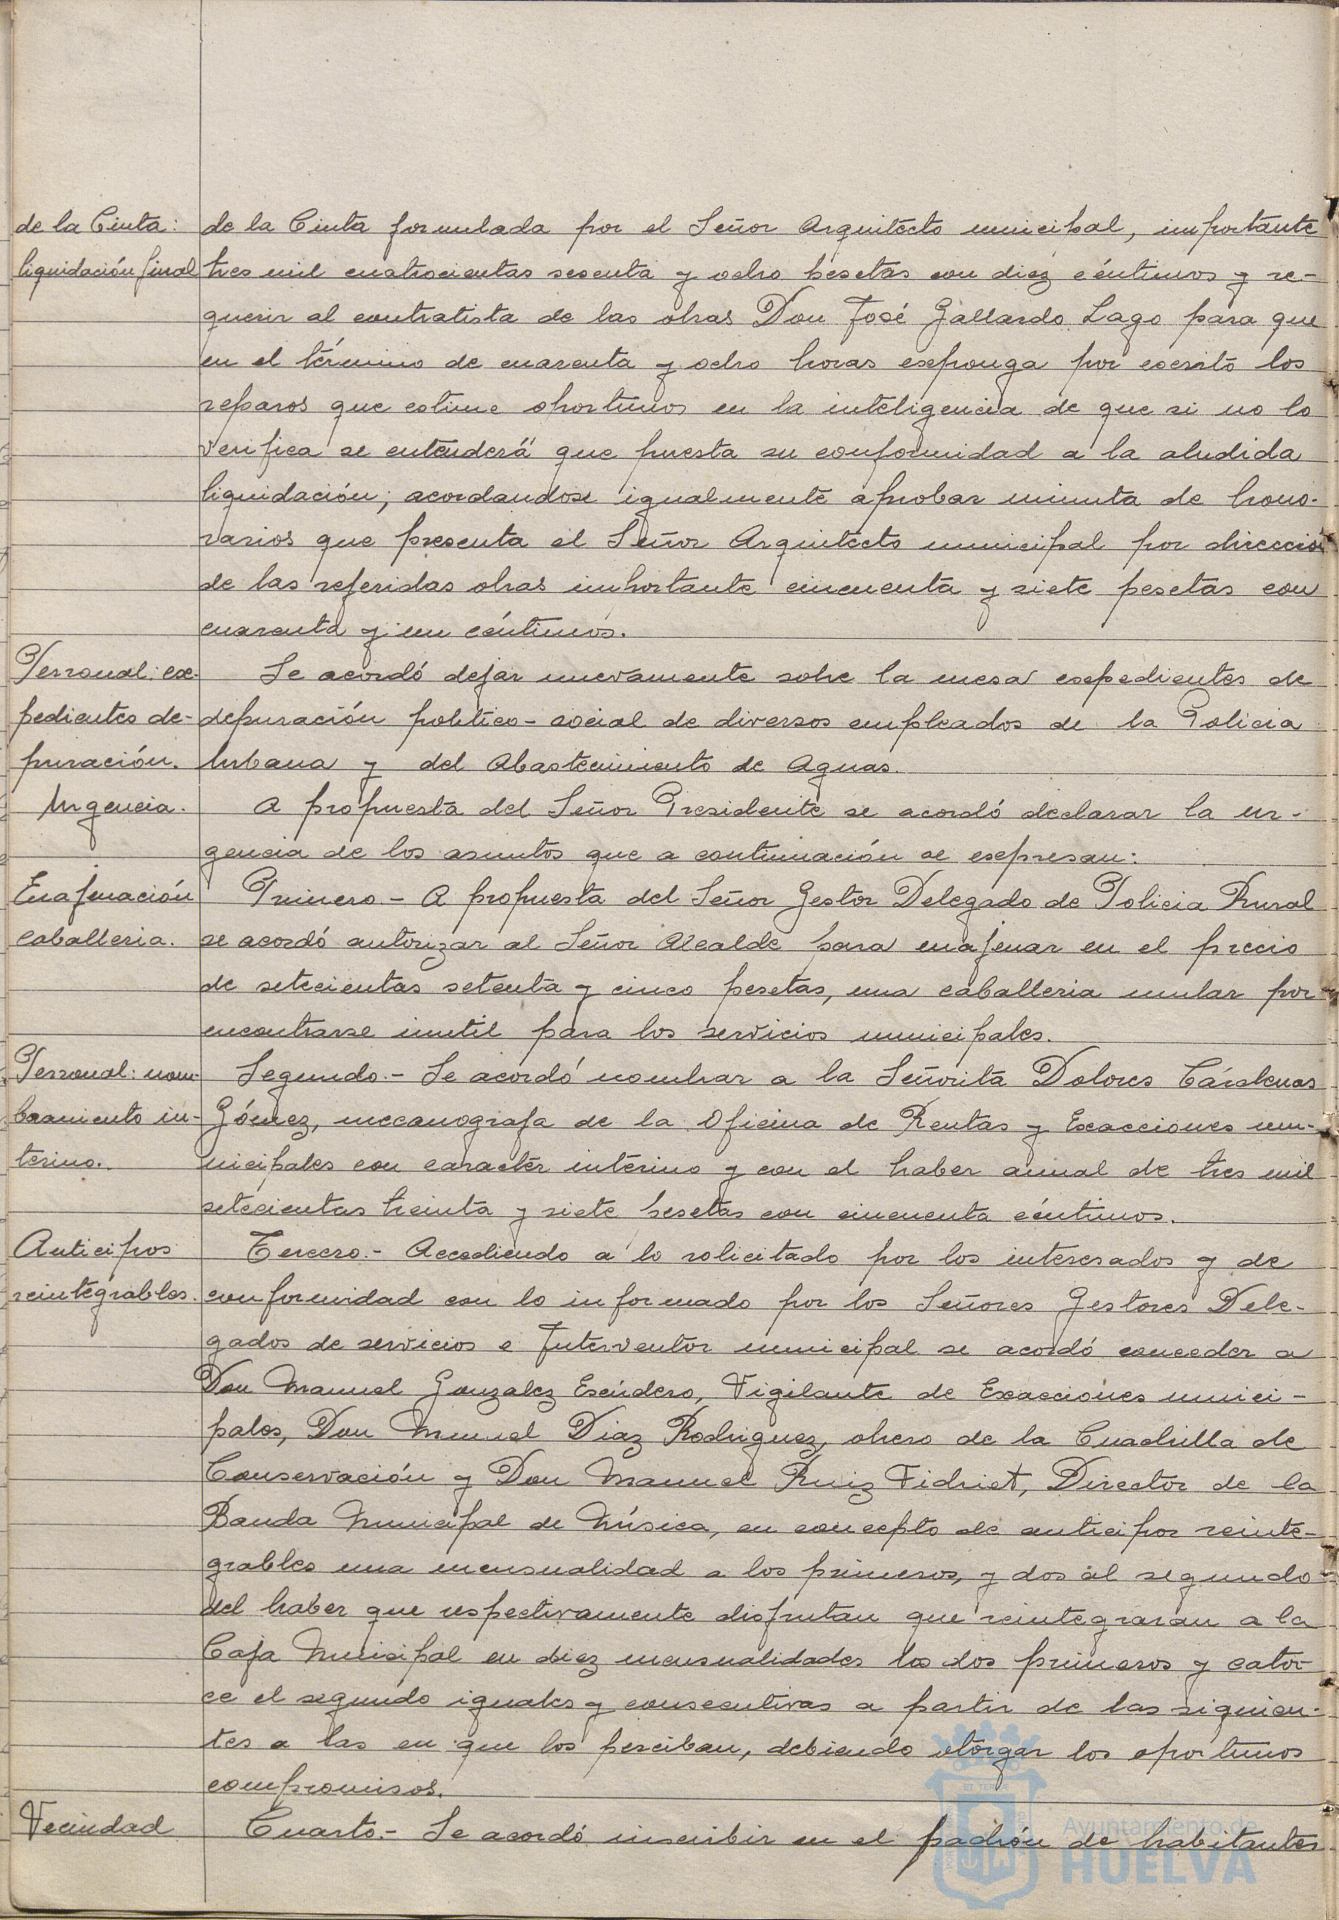 de la Cinta:
liquidación final
de la Cinta formulada por el Señor Arquitecto municipal, importante
tres mil cuatrocientas sesenta y ocho pesetas con diez céntimos y re-
querir al contratista de las obras Don José Gallardo Lago para que
en el término de cuarenta y ocho horas exponga por escrito los
reparos que estime oportunos en la inteligencia de que si no lo
verifica se entenderá que presta su conformidad a la aludida
liquidación; acordandose igualmente aprobar minuta de hono-
rarios que presenta el Señor Arquitecto municipal por dirección
de las referidas obras importante cincuenta y siete pesetas con
cuarenta y un céntimos.
Personal: ex-
pedientes de-
puración.
Se acordó dejar nuevamente sobre la mesa expedientes de
depuración politico-social de diversos empleados de la Policia
Urbana y del Abastecimiento de Aguas.
Urgencia.
A propuesta del Señor Presidente se acordó declarar la ur-
gencia de los asuntos que a continuación se expresan:
Enajenación
caballeria.
Primero.- A propuesta del Señor Gestor Delegado de Policia Rural
se acordó autorizar al Señor Alcalde para enajenar en el precio
de setecientas setenta y cinco pesetas, una caballeria mular por
encontrarse inutil para los servicios municipales.
Personal: nom-
bramiento in-
terino.
Segundo.- Se acordó nombrar a la Señorita Dolores Cárdenas
Gómez, mecanografa de la Oficina de Rentas y Exacciones mu-
nicipales con caracter interino y con el haber anual de tres mil
setecientas treinta y siete pesetas con cincuenta céntimos.
Anticipos
reintegrables.
Tercero.- Accediendo a lo solicitado por los interesados y de
conformidad con lo informado por los Señores Gestores Dele-
gados de servicios e Interventor municipal se acordó conceder a
Don Manuel Gonzalez Escudero, Vigilante de Exacciones munici-
pales, Don Manuel Diaz Rodriguez, obrero de la Cuadrilla de
Conservación y Don Manuel Ruiz Vidriet, Director de la
Banda Municipal de Música, en concepto de anticipos reinte-
grables una mensualidad a los primeros, y dos al segundo
del haber que respectivamente disfrutan que reintegraran a la
Caja Municipal en diez mensualidades los dos primeros y cator-
ce el segundo iguales y consecutivas a partir de las siguien-
tes a las en que los perciban, debiendo otorgar los oportunos
compromisos.
Vecindad
Cuarto.- Se acordó inscribir en el padrón de habitantes
Ayuntamiento de
HUELVA